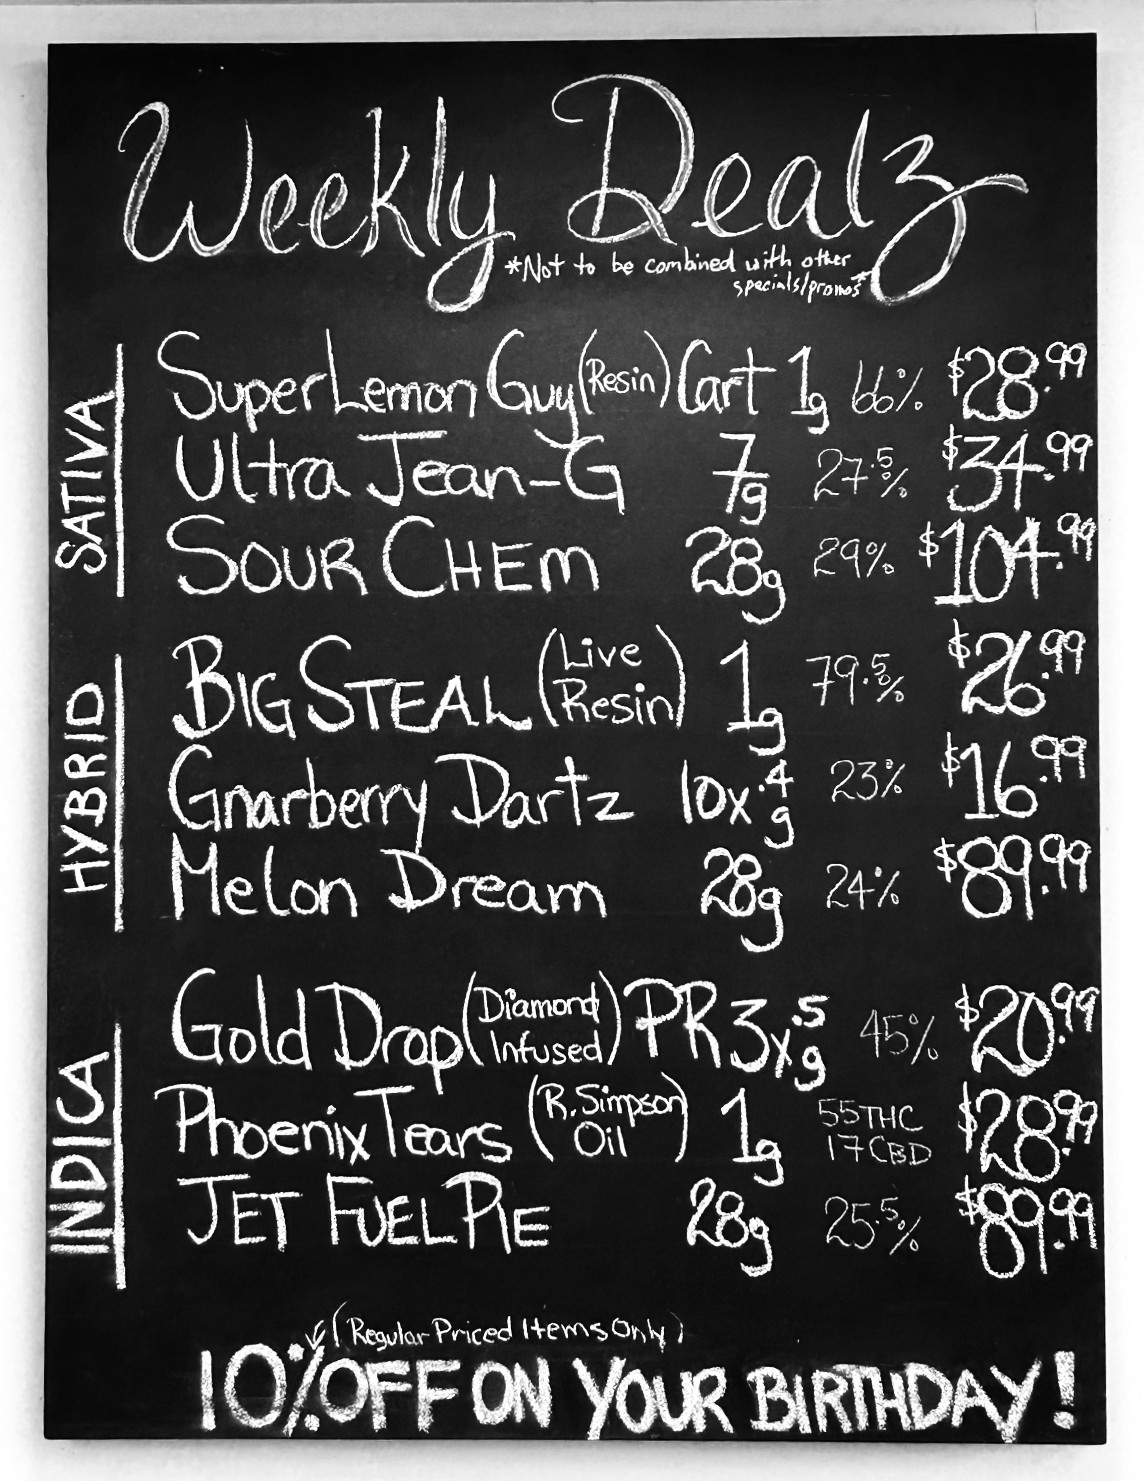 Weekly Dealz
*Not to be combined with other
specials/promos*
SATIVA
Super Lemon Guy (Resin) Cart 1g 66% $28.99
Ultra Jean-G 7g 27.5% $34.99
SOUR CHEM 28g 29% $104.99
HYBRID
BIG STEAL (Live Resin) 1g 79.5% $26.99
Gnarberry Dartz 10x.4g 23% $16.99
Melon Dream 28g 24% $89.99
INDICA
Gold Drop (Diamond Infused) PR 3x.5g 45% $20.99
Phoenix Tears (R. Simpson Oil) 1g 55THC 17CBD $28.99
JET FUEL PIE 28g 25.5% $89.99
(Regular Priced Items Only)
10% OFF ON YOUR BIRTHDAY!